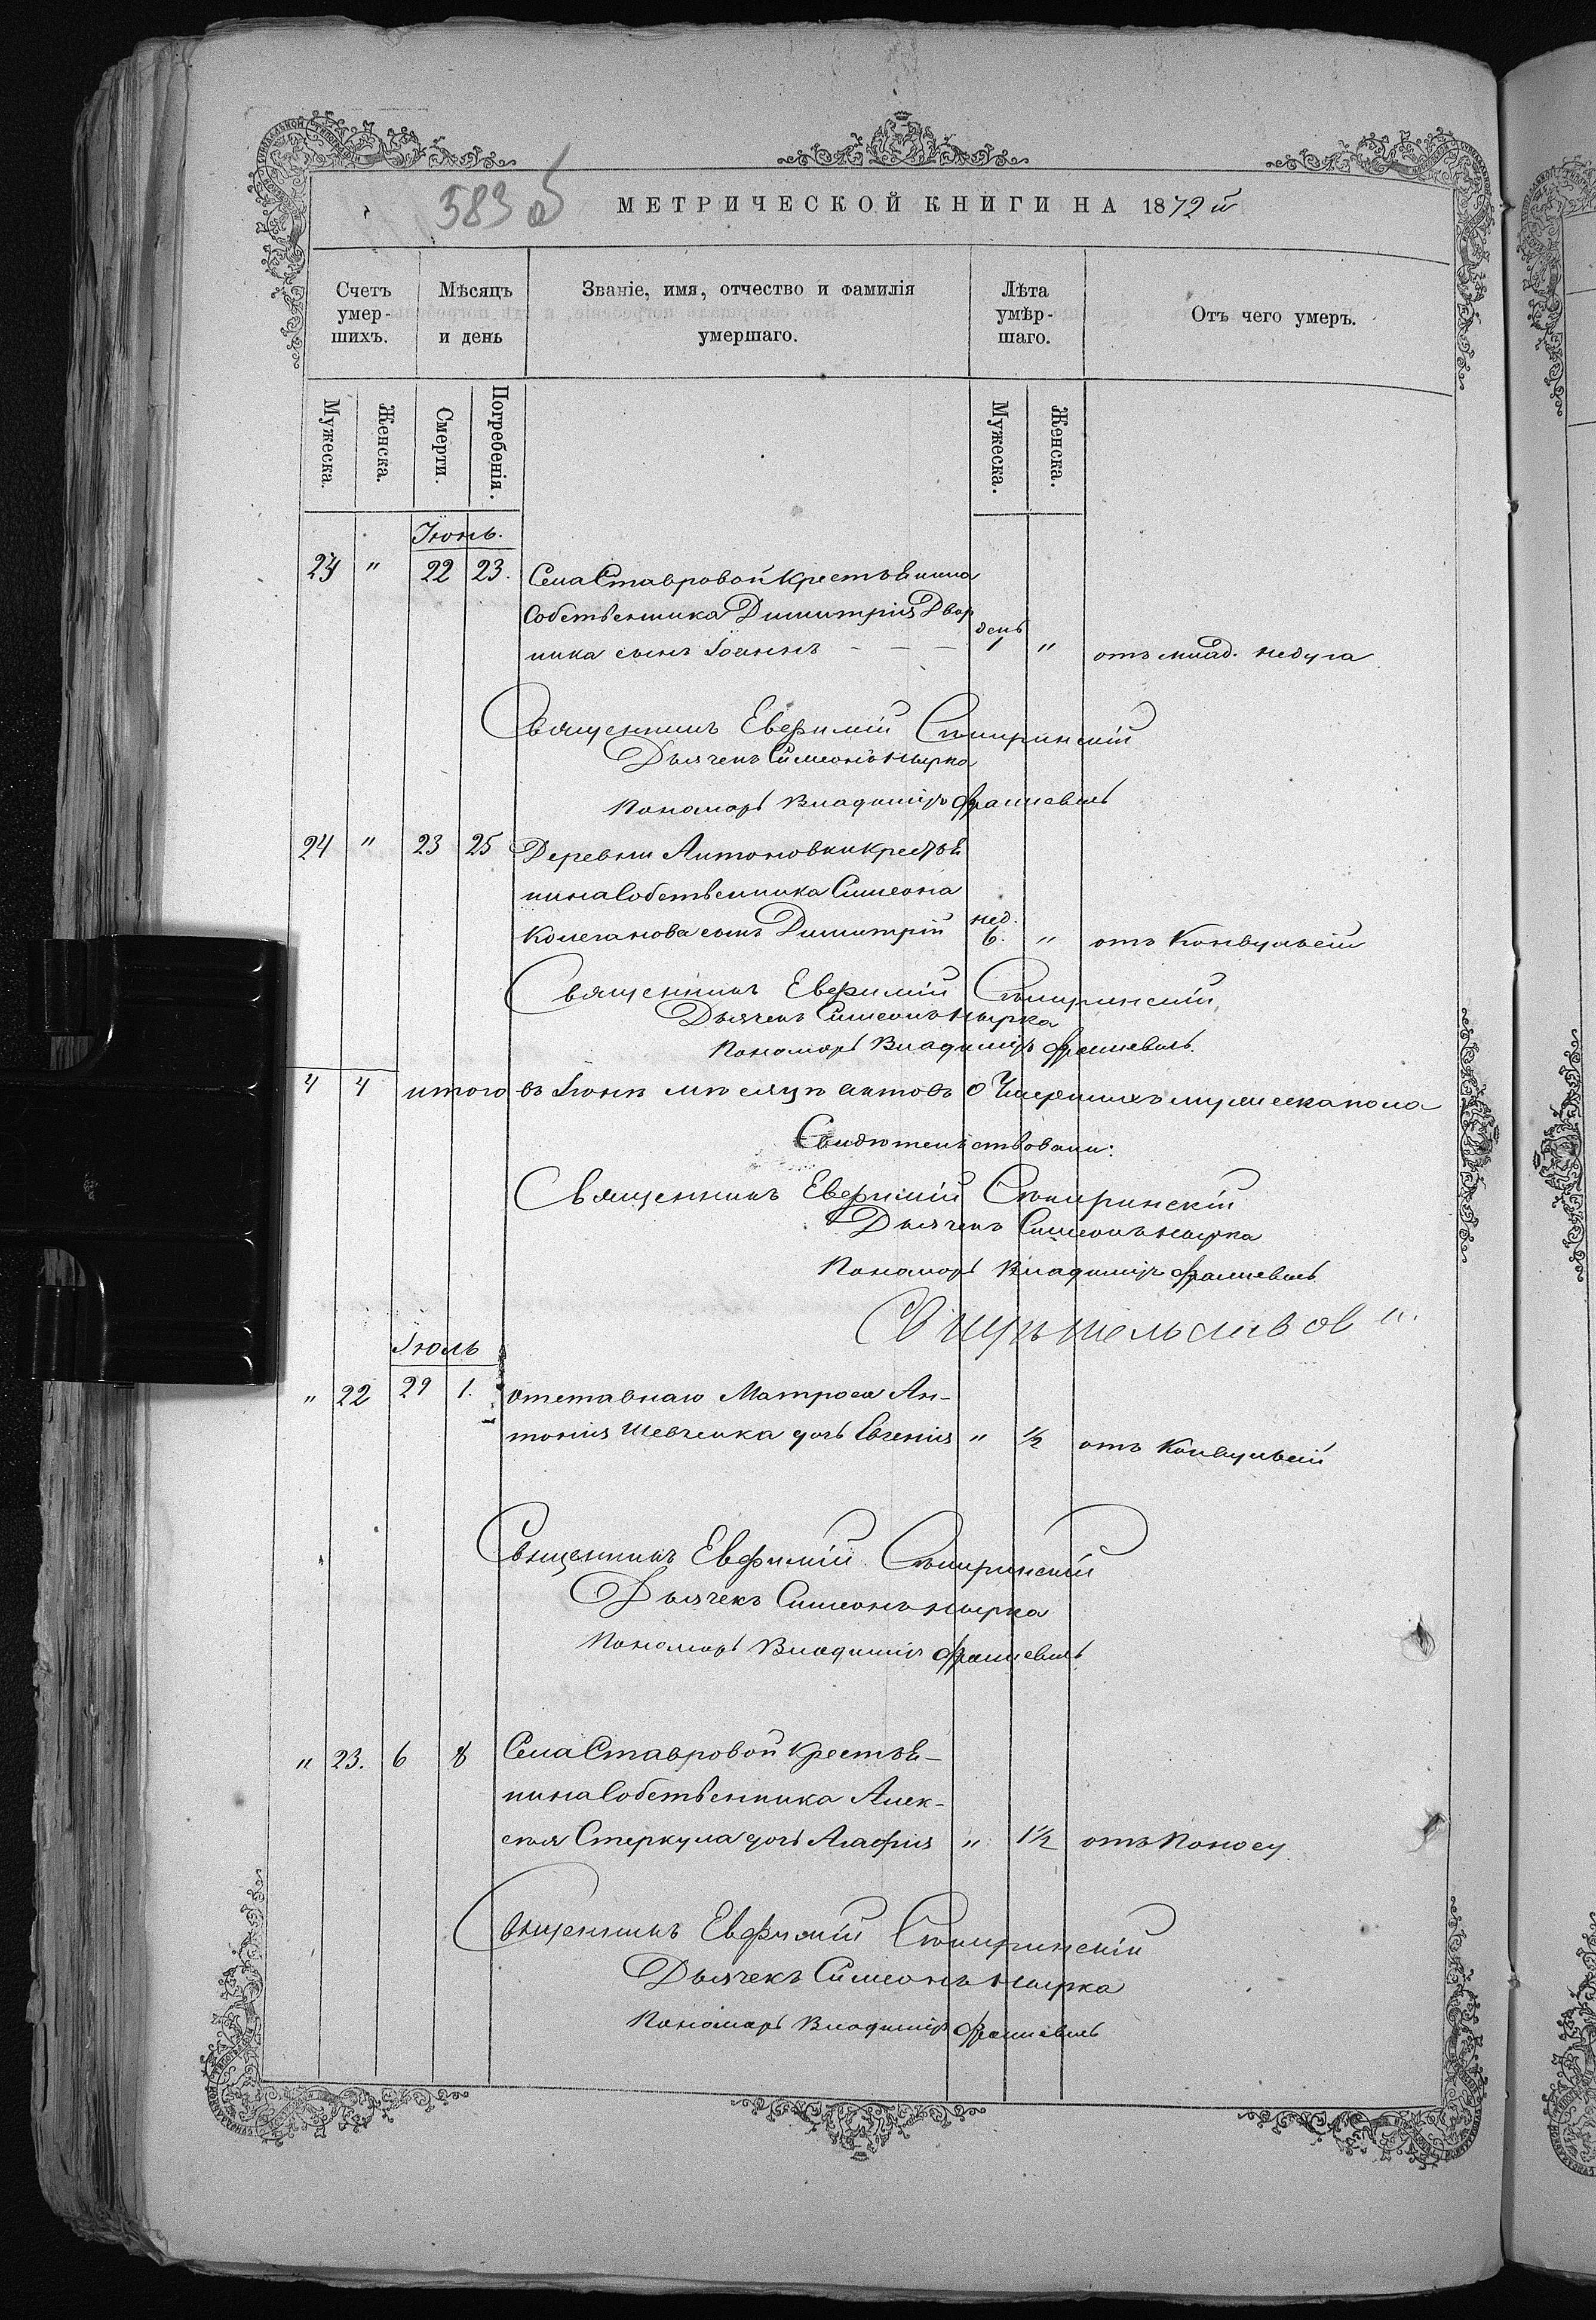 583 об
МЕТРИЧЕСКОЙ КНИГИ НА 1872 й
Счетъ умер-шихъ.
Мѣсяцъ и день
Званіе, имя, отчество и фамилія умершаго.
Лѣта умѣр-шаго.
Отъ чего умеръ.
Мужеска. Женска. Смерти. Погребенія. Мужеска. Женска.
Іюнь.
23 " 22 23. Села Ставровой крестьянина
Собственника Димитрія Двор
день
ника сынъ Іоаннъ - - - 1 " отъ млад. недуга
Священникъ Евфимій
Дьячекъ Симеонъ Нырка
Пономарь Владиміръ
24 " 23 25 Деревни Антоновки крестья
нина Собственника Симеона
нед.
сынъ Димитрій 6. " отъ Конвульсій
Священникъ Евфимій
Дьячекъ Симеонъ Нырка
Пономарь Владиміръ
4 4 итого въ Іюнѣ мѣсяцѣ актовъ о Умершихъ мужеска пола
Свидѣтельствовали:
Священникъ Евфимій
Дьячекъ Симеонъ Нырка
Пономарь Владиміръ
Іюль
" 22 29 1. отставнаго Матроса Ан-
тонія Шевченка дочь Евгенія " 1/2 отъ Конвульсій
Священникъ Евфимій
Дьячекъ Симеонъ Нырка
Пономарь Владиміръ
" 23. 6 8 Села Ставровой крестья-
нина Собственника Алек-
сѣя Стеркула дочь Агафія " 1 1/2 отъ Поносу
Священникъ Евфимій
Дьячекъ Симеонъ Нырка
Пономарь Владиміръ